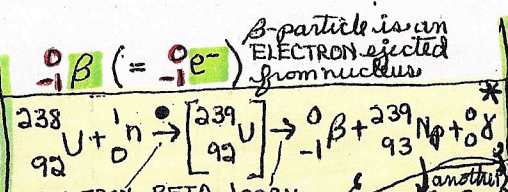 β-particle is an
⁰₋₁β (= ⁰₋₁e⁻) ELECTRON ejected
from nucleus
*
²³⁸₉₂U + ¹₀n → [²³⁹₉₂U] → ⁰₋₁β + ²³⁹₉₃Np + ⁰₀γ
another